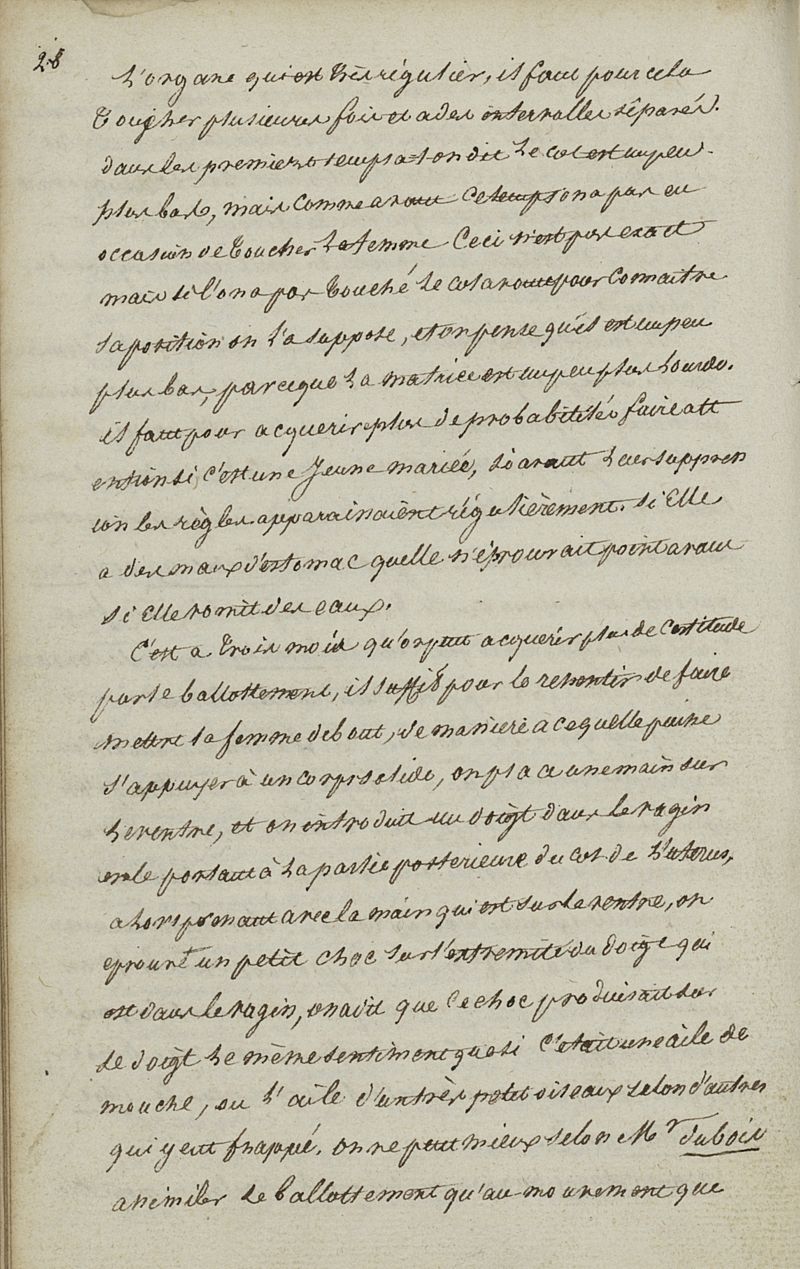 28
L'organe qui est très régulier, il faut pour cela
Toucher plusieures fois et a des intervalles séparés.
dans les premiers temps a t'on dit le col est un peu
plus bas, mais comme avant ce temps on a pas eu
occasion de Toucher la femme ceci n'est pas exact
mais si l'on a pas Touché le col avant pour connaitre
sa position on l'a suppose, et on pense qu'il est un peu
plus bas, parceque la matrice est un peu plus lourde.
il faut pour acquerir plus de probabilités faire att
ention si c'est une Jeune mariée, si avant la suppren
ion les règles apparainaient régulièrement. si Elle
a des maux d'estomac quelle n'éprouvait point avant
si Elle vomit des eaux.
C'est a Trois mois qu'on peut acquérir plus de Certitude
par le ballottement, il suffit pour le ressentir de faire
mettre la femme debout, de maniere à ce quelle puine
s'appuyer à un corps solide, on place une main sur
le ventre, et on introduit un doigt dans le vagin
en le portant à la partie posterieure du col de l'uterus,
alors prenant avec la main qui est sur le ventre, on
eprouve un petit choc sur l'extremité du doigt qui
est dans le vagin, on a dit que ce choc produisait sur
le doigt le même sentiment que si c'était une aile de
mouche, ou l'aile d'un très petit oiseaux selon d'autres
qui y eut frappé. on ne peut mieux selon Mr dubois
assimiler le ballottement qu'au mouvement que